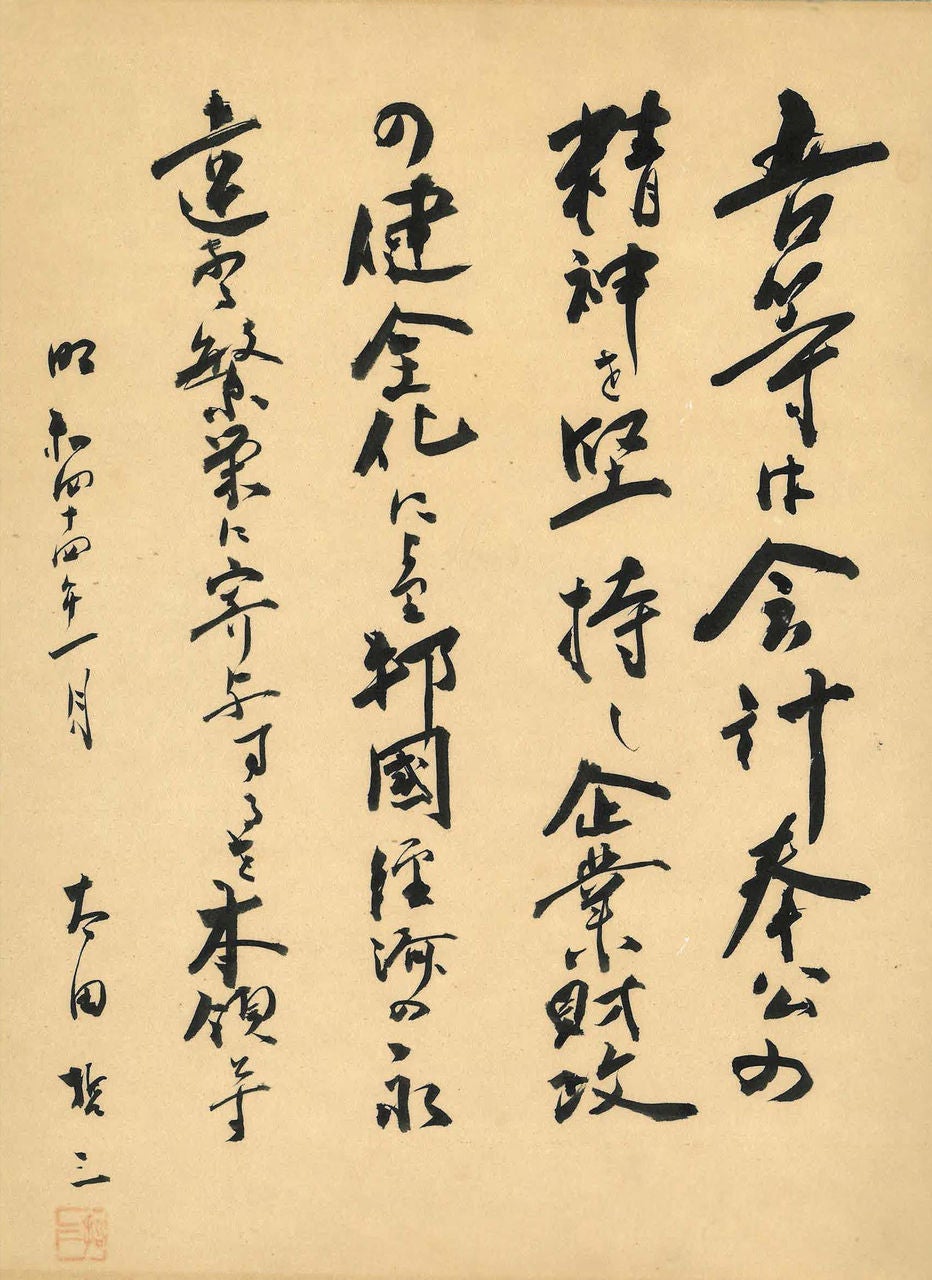 吾等は会計奉公の
精神を堅持し企業財政
の健全化により邦國経済の永
遠なる繁栄に寄与するを本領とす
昭和四十四年一月 太田哲三